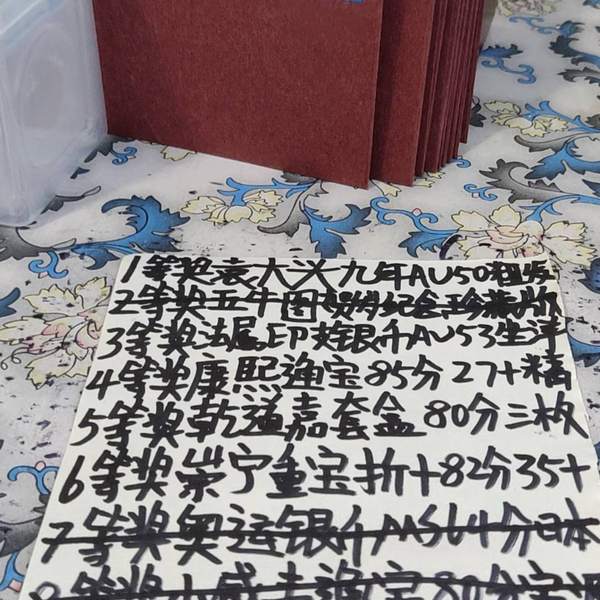 1等奖袁大头九年AU50粗发
2等奖五牛图
3等奖法属印支银币AU53坐洋
4等奖康熙通宝85分27+精
5等奖乾道嘉套盒80分三枚
6等奖崇宁重宝折十82分35+
7等奖奥运银币MS64分日本